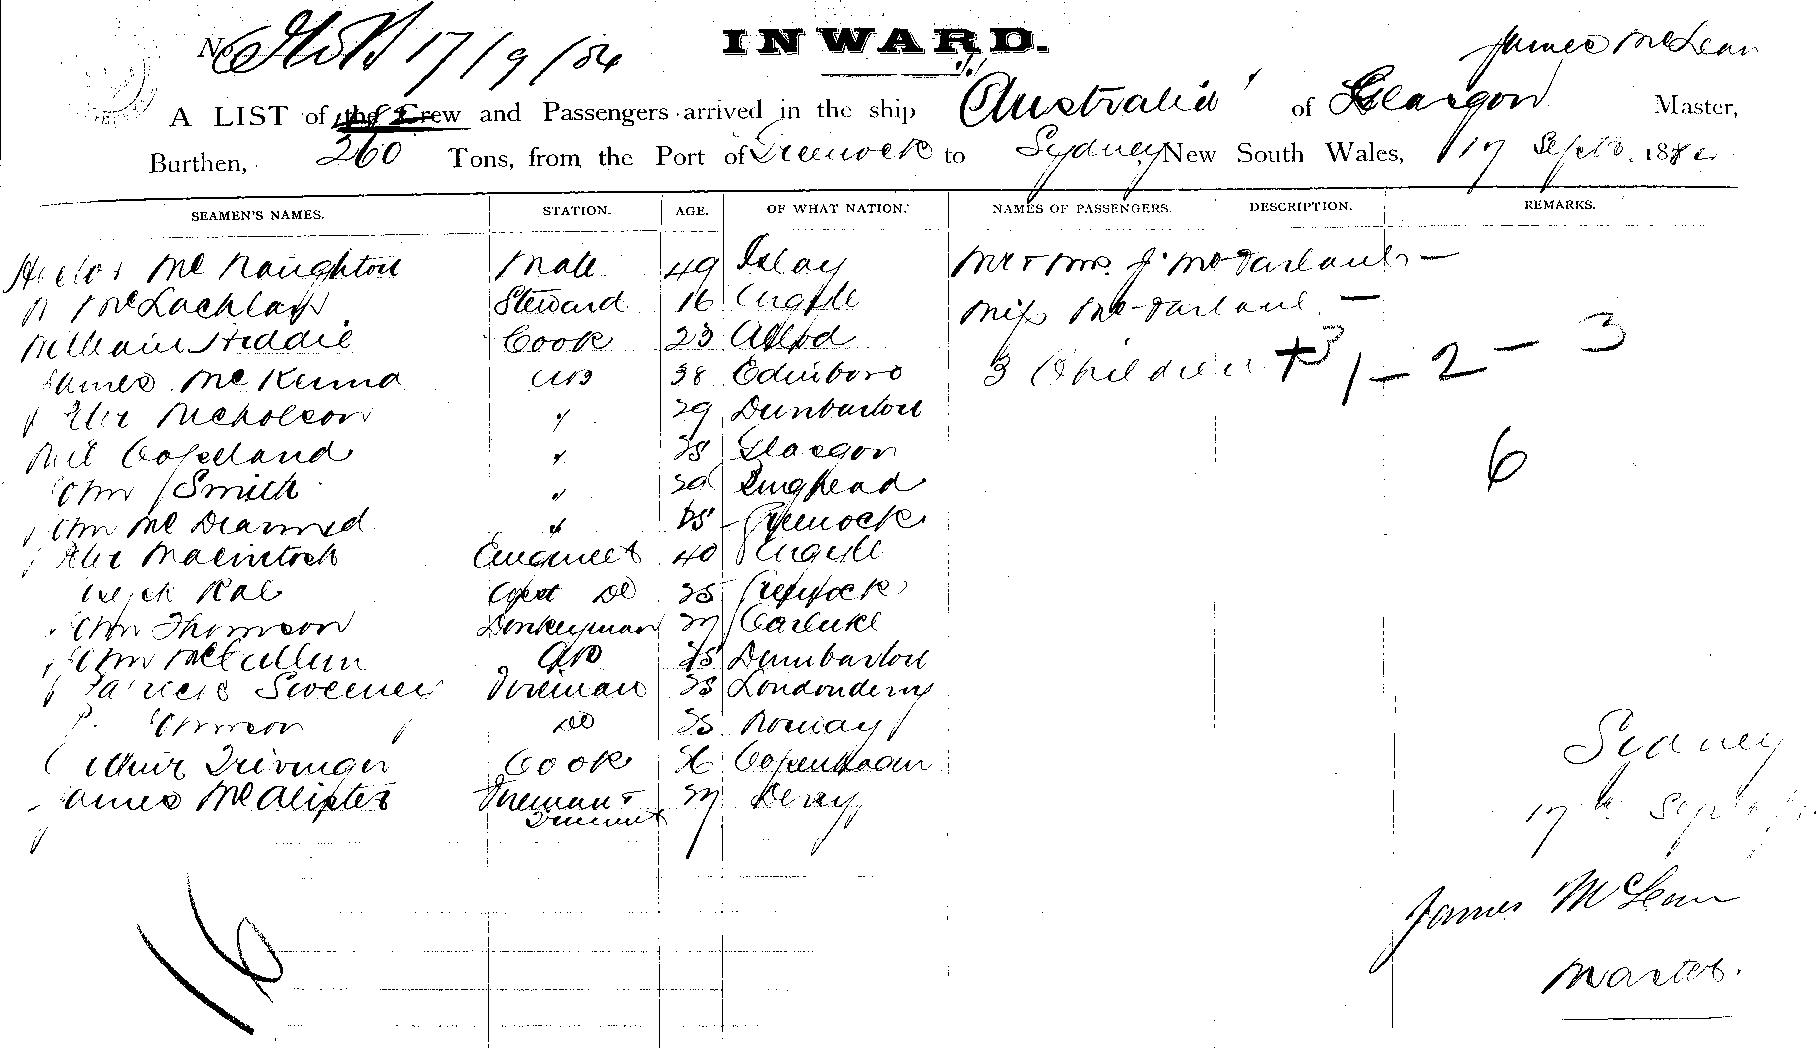 No 17/9/84
INWARD.
James McLean
A LIST of the Crew and Passengers arrived in the ship Australia of Glasgow Master,
Burthen, 260 Tons, from the Port of Greenock to Sydney New South Wales, 17 Septr. 1884
SEAMEN'S NAMES. STATION. AGE. OF WHAT NATION. NAMES OF PASSENGERS. DESCRIPTION. REMARKS.
Hector McNaughton Mate 49 Islay Mr & Mrs. J. McFarland —
McLachlan Steward 16 Argyle Miss McFarland —
William Heddle Cook 23 3 Children + 3 1 — 2 — 3
James McKenna AB 38 Edinboro
Alex Nicholson " 29 Dunbarton
Neil Copeland " Glasgow 6
John Smith "
John McDearmid " Greenock
Alex Macintosh Engineer 40 Argyle
Rae Do 35 Greenock
John Thomson Donkeyman Carluke
John McCallum AB Dumbarton
Patrick Sweeney Fireman Londonderry
Do 35
Cook Copenhagen Sydney
James McAlister Fireman & Derry 17th Sept
16
James McLean
Master.